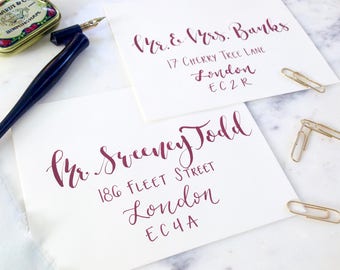 Mr. & Mrs. Banks
17 Cherry Tree Lane
London
EC2R
Mr. Sweeney Todd
186 Fleet Street
London
EC4A